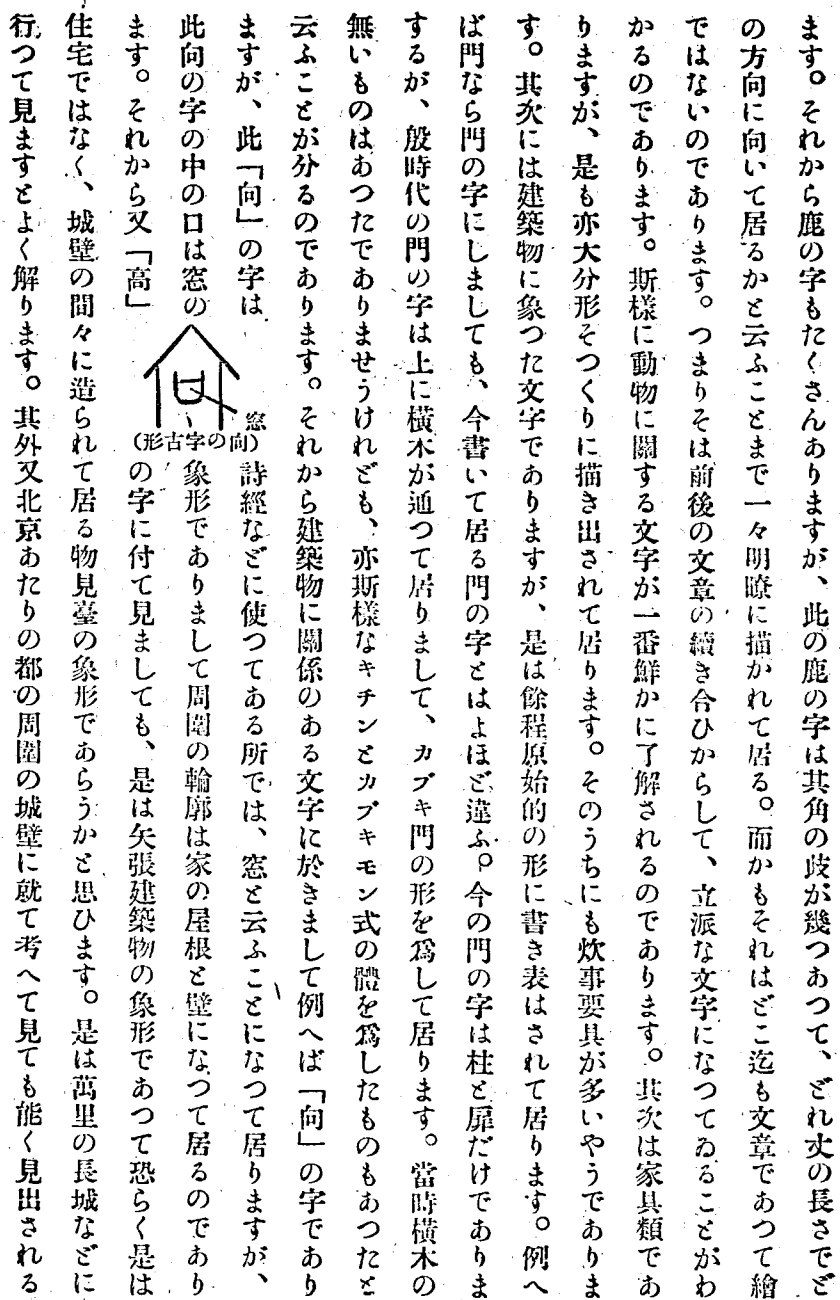 ます。それから鹿の字もたくさんありますが、此の鹿の字は其角の歧が幾つあつて、どれ丈の長さでど
の方向に向いて居るかと云ふことまで一々明瞭に描かれて居る。而かもそれはどこ迄も文章であつて繪
ではないのであります。つまりそは前後の文章の續き合ひからして、立派な文字になつてゐることがわ
かるのであります。斯樣に動物に關する文字が一番鮮かに了解されるのであります。其次は家具類であ
りますが、是も亦大分形そつくりに描き出されて居ります。そのうちにも炊事要具が多いやうでありま
す。其次には建築物に象つた文字でありますが、是は餘程原始的の形に書き表はされて居ります。例へ
ば門なら門の字にしましても、今書いて居る門の字とはよほど違ふ。今の門の字は柱と扉だけでありま
するが、殷時代の門の字は上に橫木が通つて居りまして、カブキ門の形を爲して居ります。當時橫木の
無いものはあつたでありませうけれども、亦斯樣なキチンとカブキモン式の體を爲したものもあつたと
云ふことが分るのであります。それから建築物に關係のある文字に於きまして例へば「向」の字であり
ますが、此「向」の字は詩經などに使つてある所では、窓と云ふことになつて居りますが、
此向の字の中の口は窓の象形でありまして周圍の輪廓は家の屋根と壁になつて居るのであり
ます。それから又「高」の字に付て見ましても、是は矢張建築物の象形であつて恐らく是は
窓
(向の字古形)
住宅ではなく、城壁の間々に造られて居る物見臺の象形であらうかと思ひます。是は萬里の長城などに
行つて見ますとよく解ります。其外又北京あたりの都の周圍の城壁に就て考へて見ても能く見出される